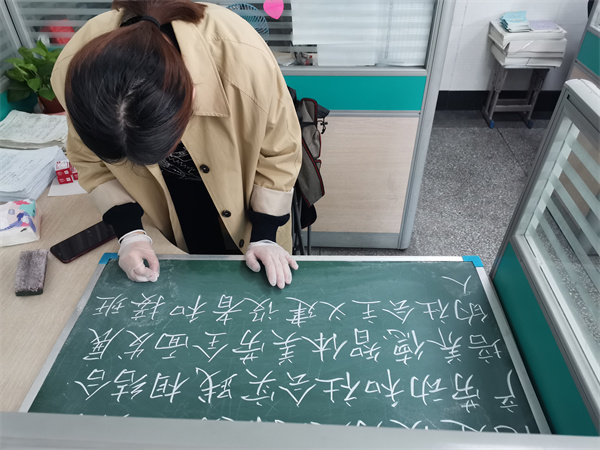 产劳动和社会实践相结合
培养德智体美劳全面发展
的社会主义建设者和接班
人